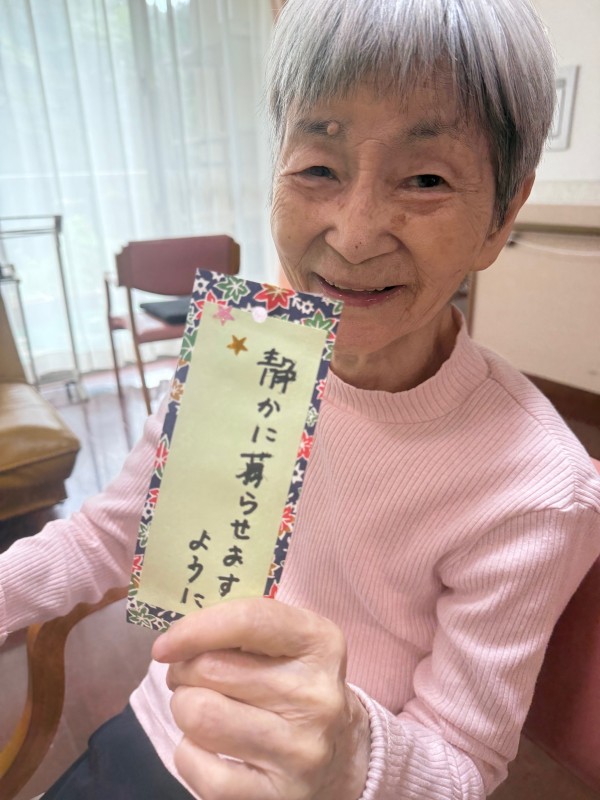 静かに暮らせます
ように